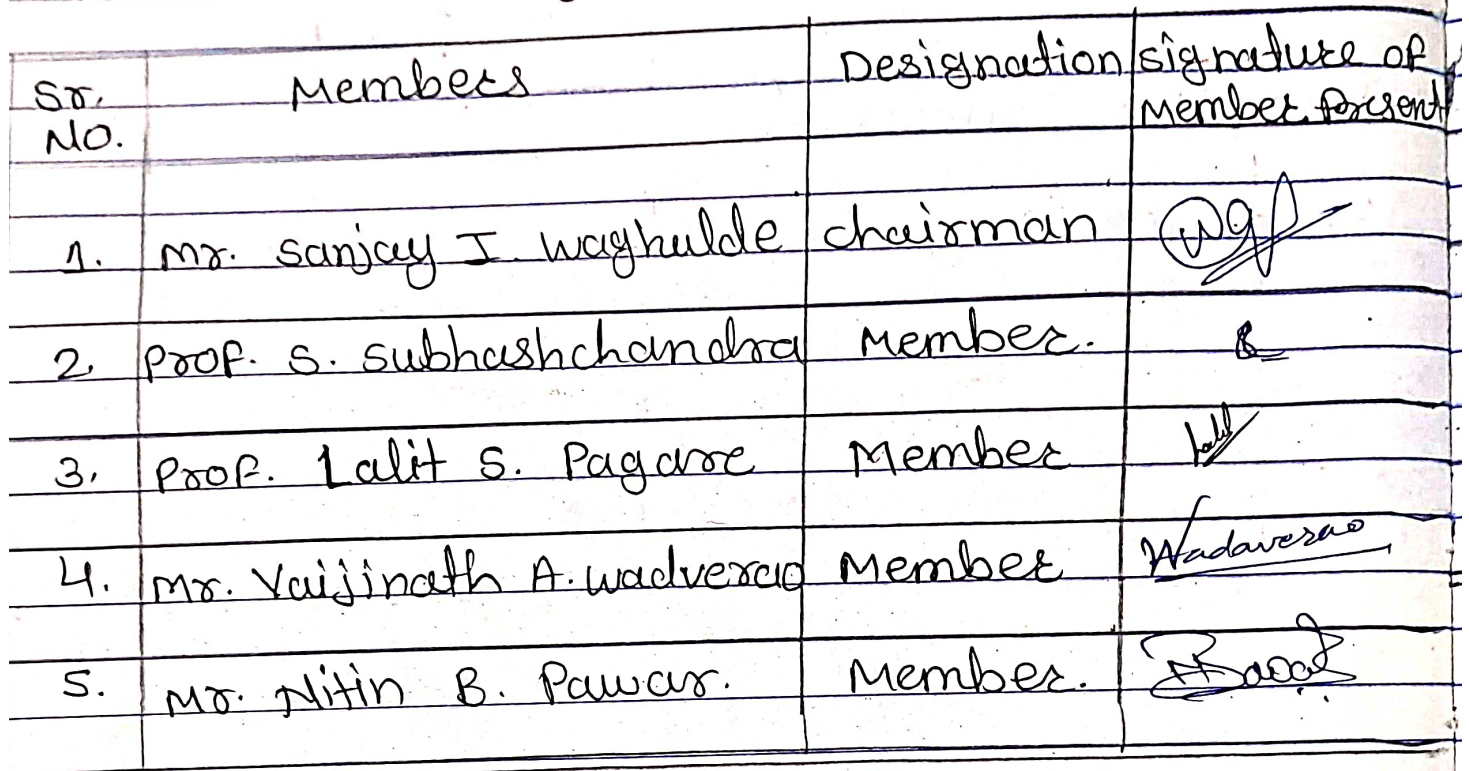 Sr. Members Designation signature of
No. Member Present
1. Mr. Sanjay I. Waghulde chairman
2. Prof. S. Subhashchandra Member.
3. Prof. Lalit S. Pagare Member
4. Mr. Vaijinath A. Wadverao Member Wadaverao
5. Mr. Nitin B. Pawar. Member.